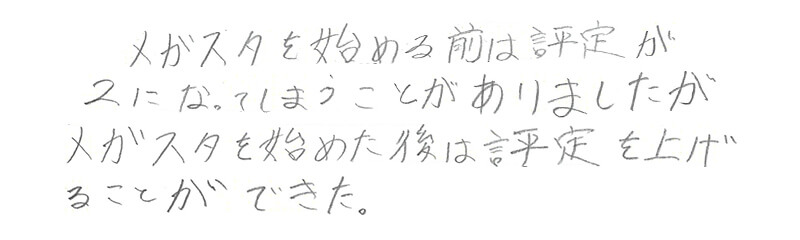 メガスタを始める前は評定が
2になってしまうことがありましたが
メガスタを始めた後は評定を上げ
ることができた。